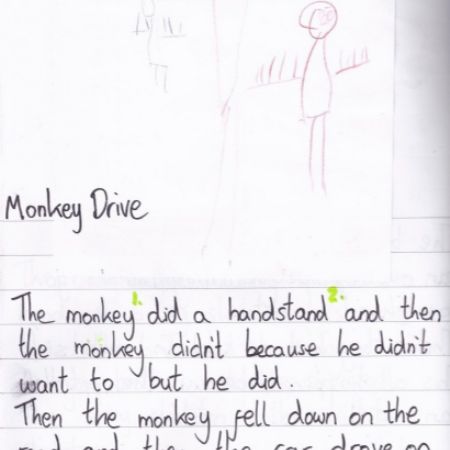 Monkey Drive
The monkey 1. did a handstand 2. and then
the monkey didn't because he didn't
want to but he did.
Then the monkey fell down on the
and the the car drove on